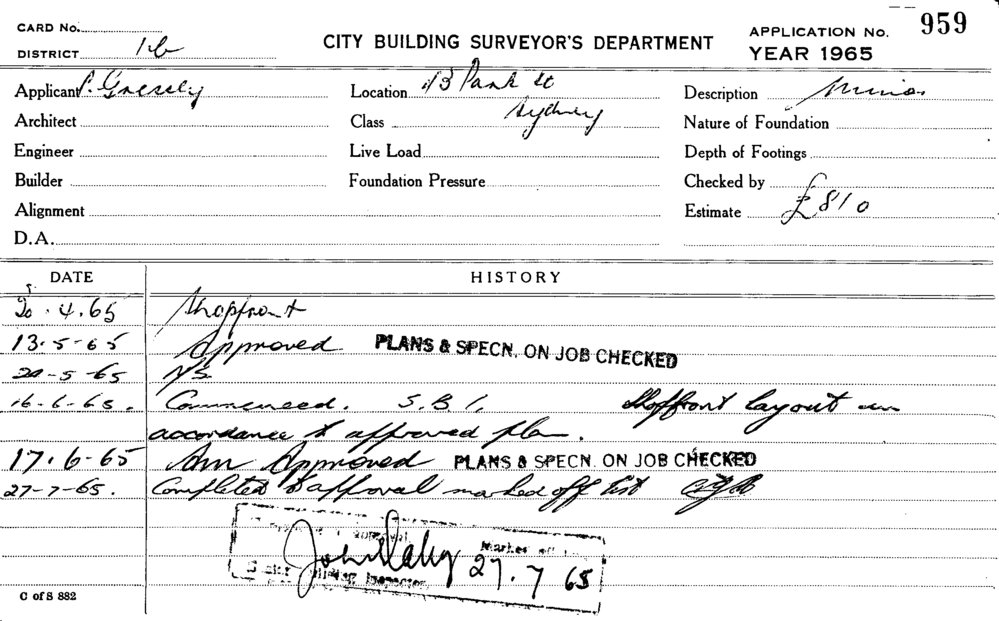 CARD No.
959
DISTRICT 16
CITY BUILDING SURVEYOR'S DEPARTMENT
APPLICATION No.
YEAR 1965
Applicant P.
Location 13 Park St
Sydney
Description Minor
Architect
Class
Nature of Foundation
Engineer
Live Load
Depth of Footings
Builder
Foundation Pressure
Checked by
Alignment
Estimate £810
D.A.
DATE HISTORY
20.4.65 Shopfront
13-5-65 Approved PLANS & SPECN. ON JOB CHECKED
20-5-65 N/S.
16-6-65. Commenced. S.B.I. Shopfront layout in
accordance to approved plan.
17.6-65 Am Approved PLANS & SPECN. ON JOB CHECKED
27-7-65. Completed to approval marked off list
Marked off
John Daly 27.7.65
Building Inspector
C of S 882